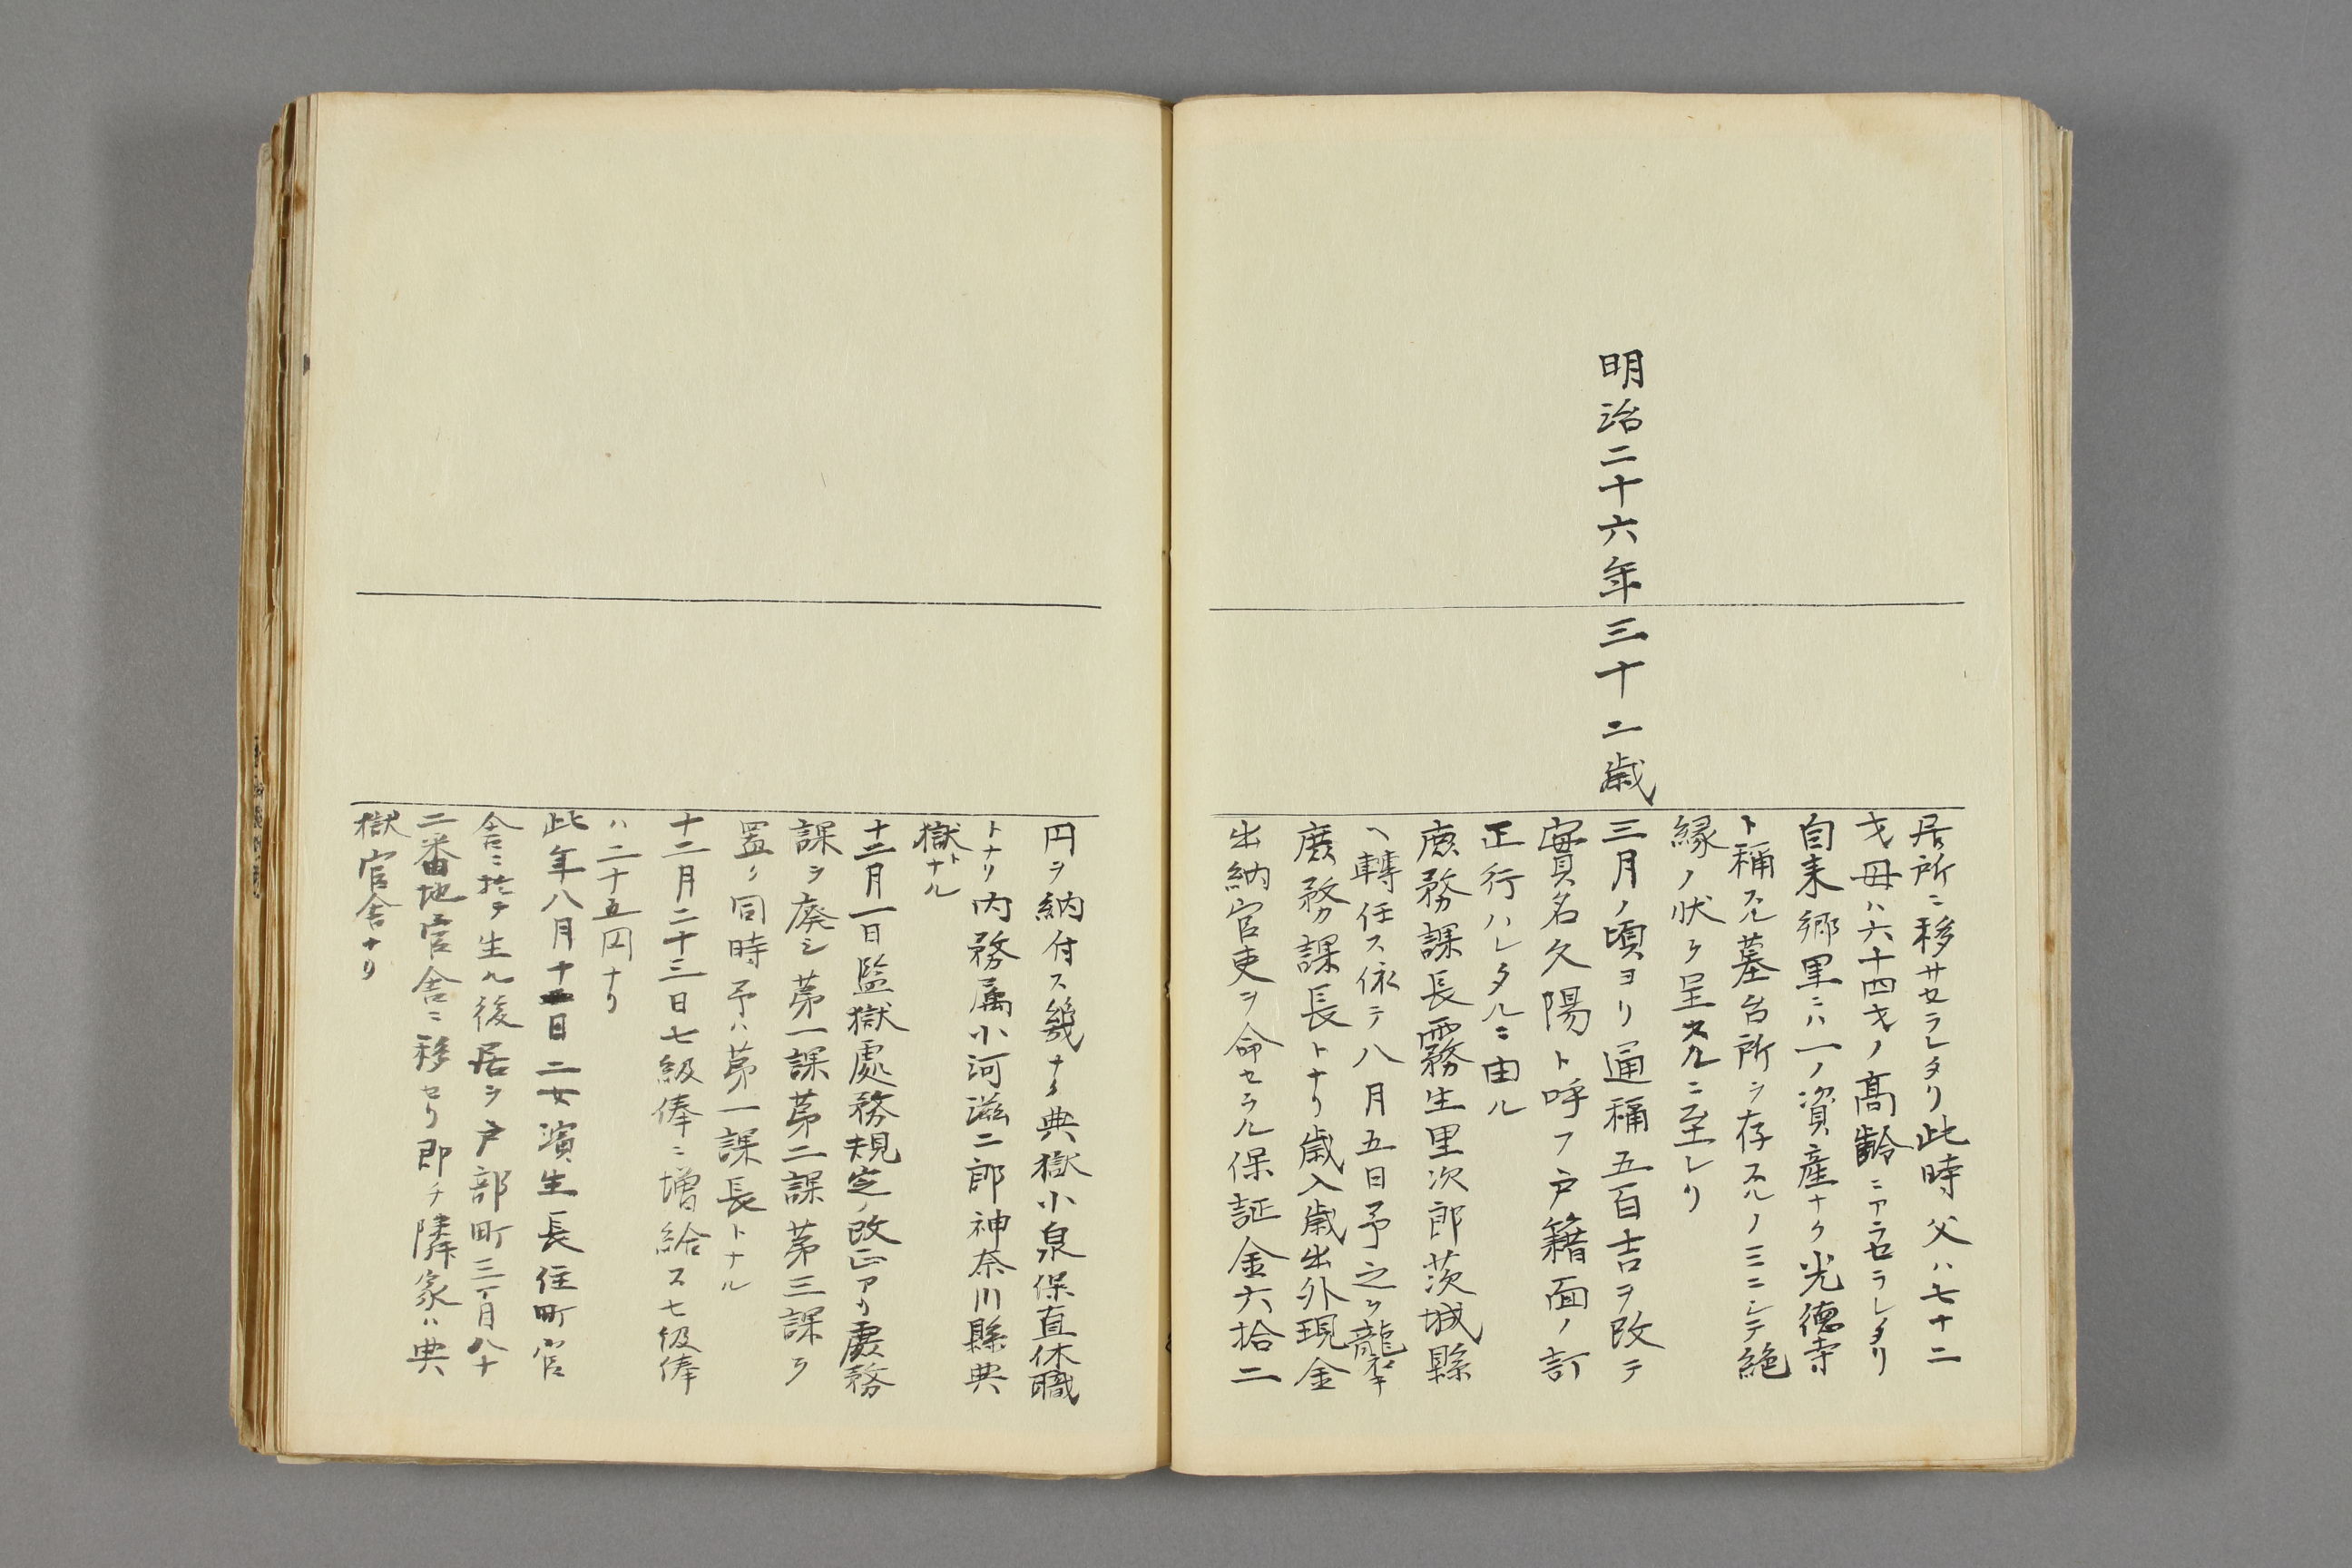 居所ニ移サセラレタリ此時父ハ七十二
才母ハ六十四才ノ高齢ニアラセラレタリ
自来郷里ニハ一ノ資産ナク光徳寺
ト稱スル墓台所ヲ存スルノミニシテ絶
縁ノ状ヲ呈スルニ至レリ
明治二十六年三十二歳
三月ノ頃ヨリ通稱五百吉ヲ改テ
實名久陽ト呼フ戸籍面ノ訂
正行ハレタルニ由ル
庶務課長霧生里次郎茨城縣
ヘ轉任ス依テ八月五日予之ヲ襲キ
庶務課長トナリ歳入歳出外現金
出納官吏ヲ命セラル保証金六拾二
円ヲ納付ス幾ナク典獄小泉保直休職
トナリ内務属小河滋二郎神奈川縣典
獄トナル
十二月一日監獄處務規定ノ改正アリ處務
課ヲ廃シ第一課第二課第三課ヲ
置ク同時予ハ第一課長トナル
十二月二十三日七級俸ニ増給ス七級俸
ハ二十五円ナリ
此年八月十一日二女濱生長住町官
舎ニ於テ生ル後居ヲ戸部町三丁目八十
二番地官舎ニ移セリ即チ隣家ハ典
獄官舎ナリ